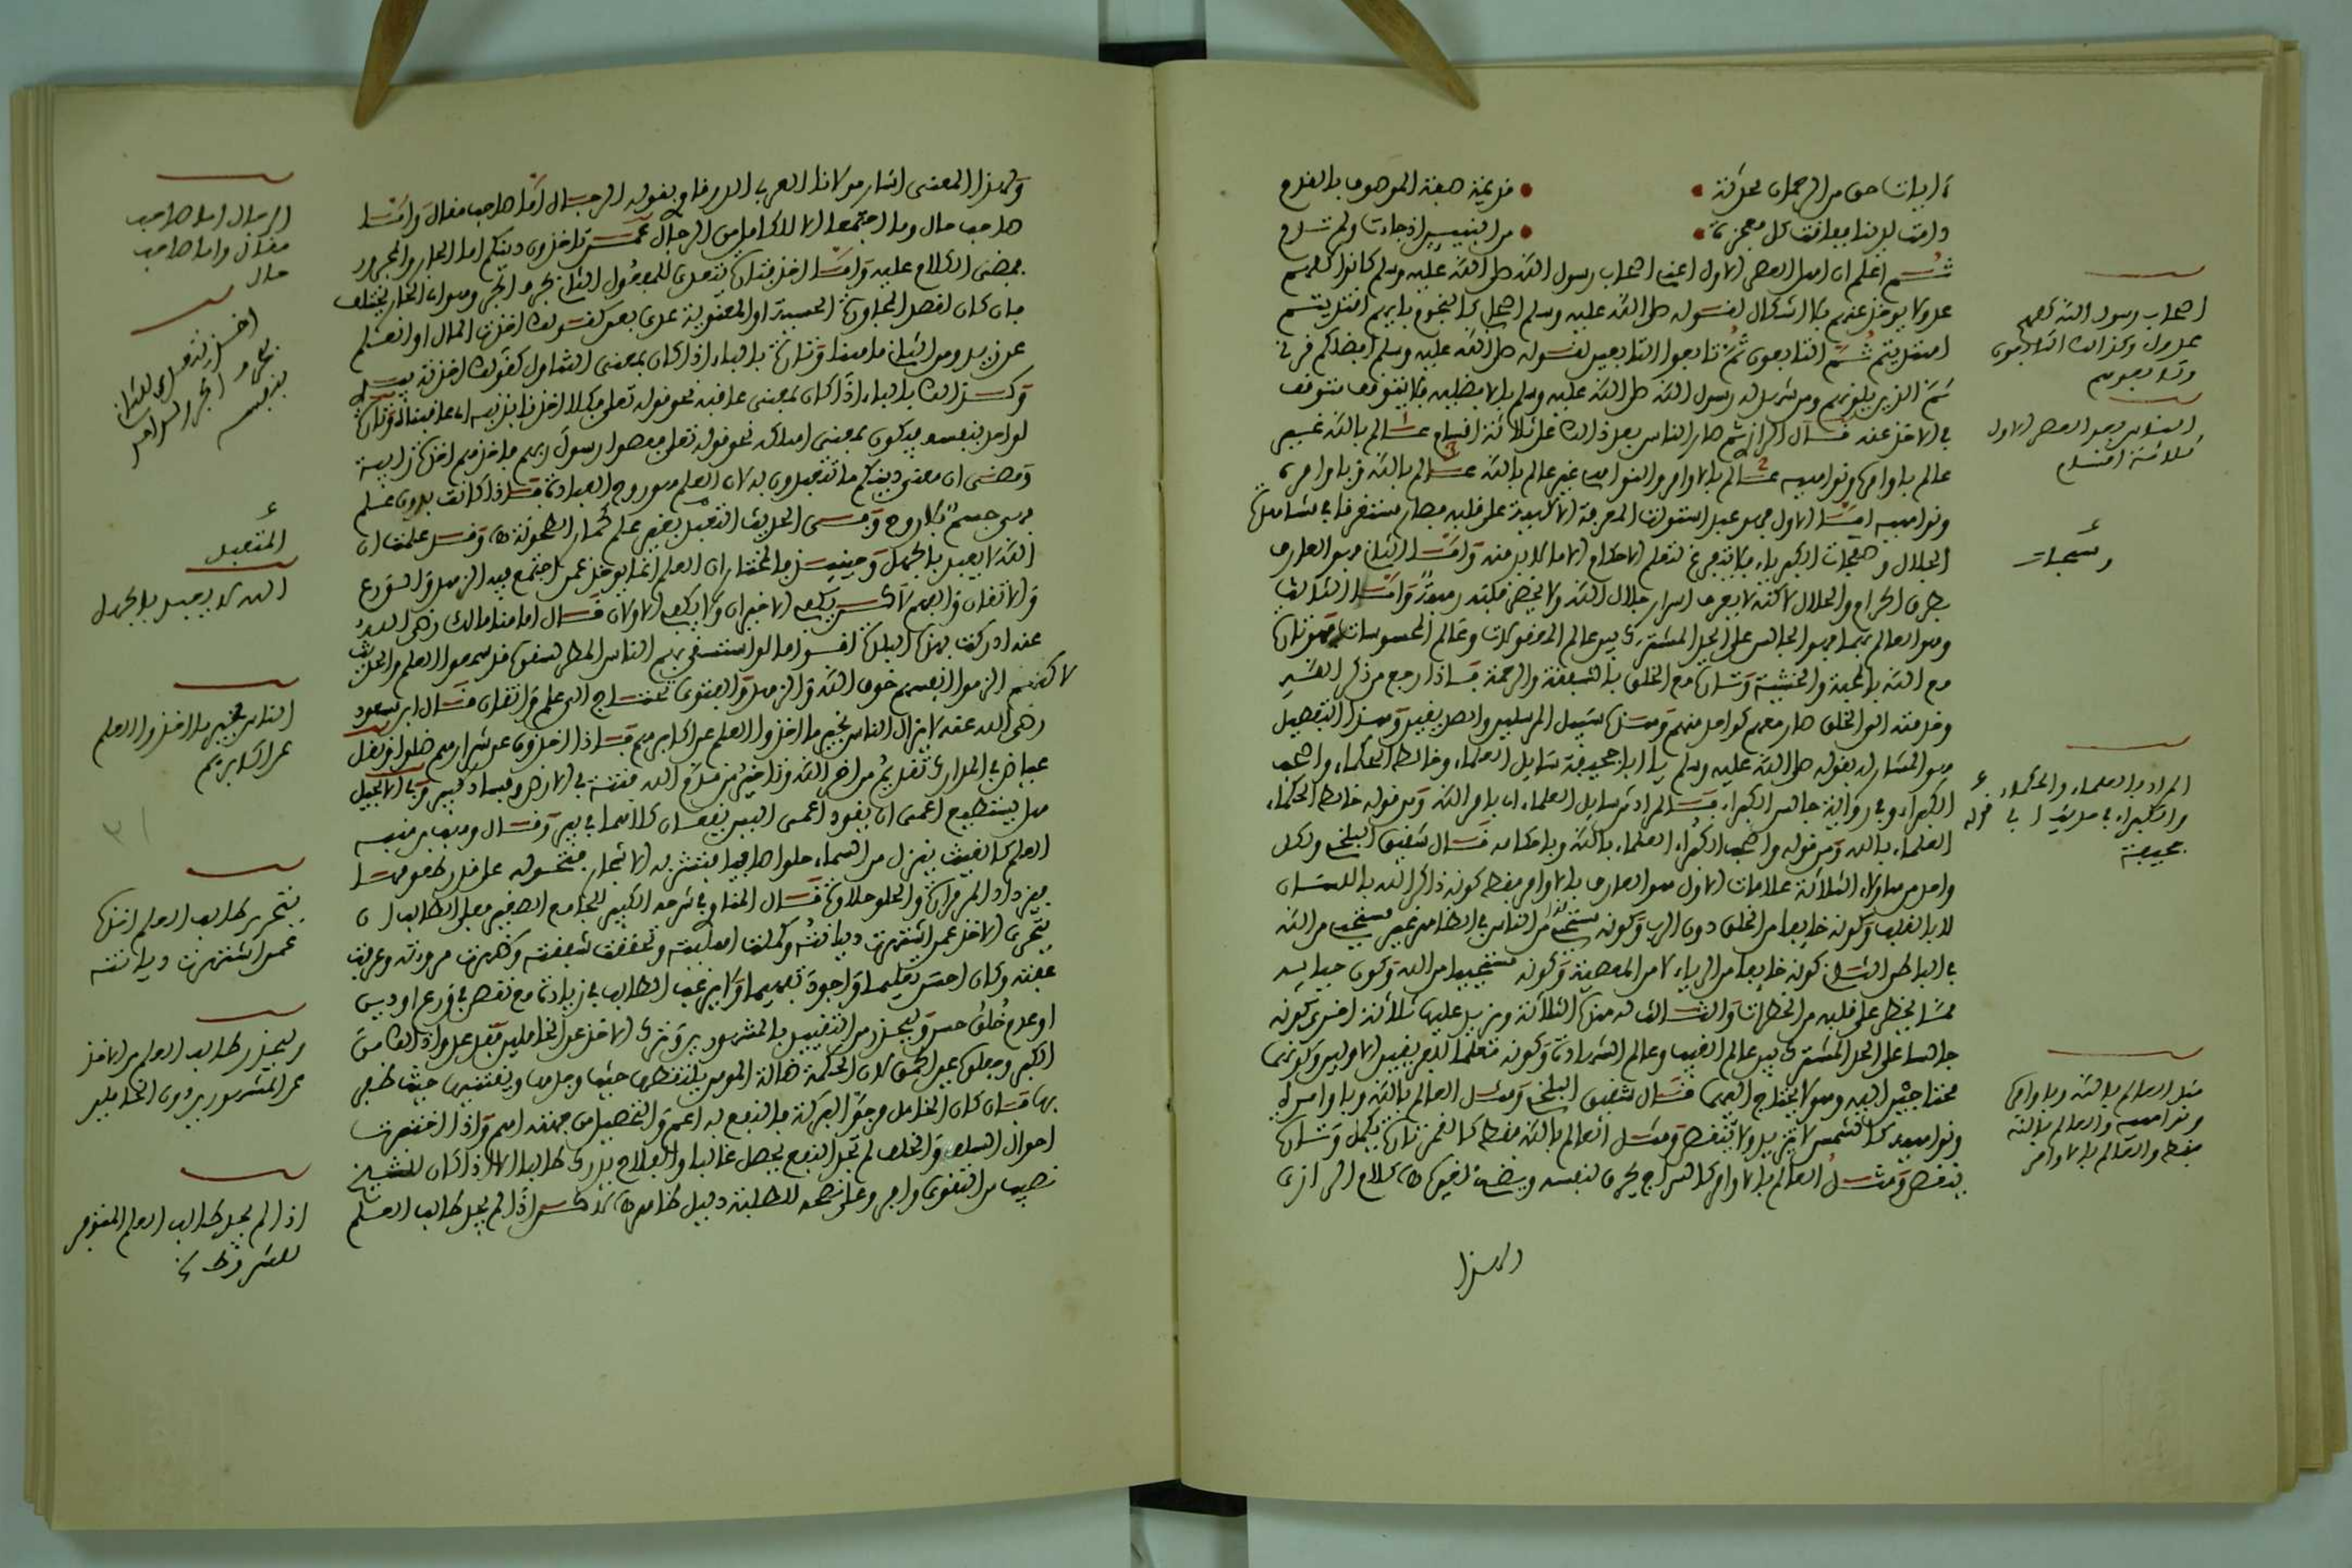 ءايات حق من الرحمان محدثة • • قديمة صفة الموصوف بالقدم
دامت لدينا ففاقت كل معجزة • • من النبيين اذ جاءت ولم تدم
ثم اعلم ان اهل العصر الاول اعني اصحاب رسول الله صلى الله عليه وسلم كانوا كلهم
عدولا يوخذ عنهم بلا اشكال لقوله صلى الله عليه وسلم اصحابي كالنجوم بايهم اقتديتم
اهتديتم ثم التابعون ثم تابعوا التابعين لقوله صلى الله عليه وسلم افضلكم قرني
ثم الذين يلونهم ومن شهد له رسول الله صلى الله عليه وسلم بالافضلية فلا يتوقف متوقف
في الاخذ عنه قال الرازي ثم صار الناس بعد ذلك على ثلاثة اقسام عالم بالله غير
عالم باوامره ونواهيه عالم بالاوامر والنواهي غير عالم بالله عالم بالله وباوامره
ونواهيه اما الاول فهو عبد استولت المعرفة الالهية على قلبه فصار مستغرقا في مشاهدة
الجلال وصفحات الكبرياء فلا يتفرغ لتعلم الاحكام الا ما لا بد منه واما الثاني فهو العارف
بطرق الحرام والحلال لاكنه لا يعرف اسرار جلال الله ولا تخضر فكتد رموز واما الثالث
وهو العالم بهما فهو الجالس على الحد المشترك بين عالم المعقولات وعالم المحسوسات فهو تارة
مع الله بالمحبة والخشية وتارة مع الخلق بالشفقة والرحمة فاذا رجع من ذكر الله
وخدمته الى الخلق صار معهم كواحد منهم وهذه سبيل المرسلين والصديقين وهذا التفصيل
هو المشار له بقوله صلى الله عليه وسلم يا ابا جحيفة سايل العلماء وخالط الحكماء واصحب
الكبراء وفي رواية جالس الكبراء فالمراد من سايل العلماء اي بامر الله ومن قوله خالط الحكماء
العلماء بالله ومن قوله واصحب الكبراء العلماء بالله وباحكامه قال شقيق البلخي ولكل
واحد من هؤلاء الثلاثة علامات الاول هو العارف بالاوامر فقط كونه ذاكر الله باللسان
لا بالقلب وكونه خايفا من الخلق دون الرب وكونه مستحيا من الناس في الظاهر غير مستحي من الله
في الباطن الثاني كونه خايفا من الرياء لا من المعصية وكونه مستحييا من الله وكون حياييه
مما يخطر على قلبه من الخطرات والثالث له هذه الثلاثة ويزيد عليها ثلاثة اخرى كونه
جالسا على الحد المشترك بين عالم الغيب وعالم الشهادة وكونه معلما للفريقين الاولين وكونهما
محتاجين اليه وهو لا يحتاج اليهما قال شقيق البلخي ومثل العالم بالله وباوامره
ونواهيه كالشمس لا تزيد ولا تنقص ومثل العالم بالله فقط كالقمر تارة يكمل وتارة
ينقص ومثل العالم بالاوامر كالسراج يحرق نفسه ويضيء لغيره اه كلام الرازي
ولهذا
اصحاب رسول الله كلهم
عدول وكذلك التابعون
وتابعوهم
الناس بعد العصر الاول
ثلاثة اقسام
وسبحات
المراد بالعلماء والحكماء
والكبراء في حديث ابي
جحيفة
مثل العالم بالله وباوامره
ونواهيه والعالم بالله
فقط والعالم بالاوامر
ولهذا المعنى اشار مولانا العربي الدرقاوي بقوله الرجال اما صاحب مقال واما
صاحب حال وما اجتمعا الا للكامل من الرجال عمن تاخذون دينكم اما الجار والمجرور
فمضى الكلام عليه واما اخذ فتارة يتعدى للمفعول الثاني بحرف الجر وهو ان الجار يختلف
فان كان لقصد المجاوزة الحسية او المعنوية عدي بعن كقولك اخذت المال او العلم
عن زيد وهو الثاني ما هنا وتارة بالباء اذا كان بمعنى التناول كقولك اخذته بيده
وكذلك بالباء اذا كان بمعنى عاقبه نحو قوله تعلى فكلا اخذنا بذنبه اي عاقبناه وتارة
لواحد بنفسه فيكون بمعنى اهلكه نحو قوله تعلى فعصوا رسول ربهم فاخذهم اخذة رابية
ومضى ان معنى دينكم ما تتعبدون به لان العلم هو روح العبادة فاذا كانت بدون علم
فهي جسم بلا روح وفي الحديث المتعبد بغير علم كحمار الطاحونة اه وقد علمت ان
الله لا يعبد بالجهل وحينئذ فالمختار ان العلم انما يوخذ عمن اجتمع فيه الزهد والورع
والاتقان والفهم لا كمن يكفي الاخيران ولا يكفي الاولان قال امامنا مالك رضي الله
عنه ادركت بهذه البلدة اقواما لو استسقي بهم الناس المطر لسقوا قد سمعوا العلم والحديث
لاكنهم الزموا انفسهم خوف الله والزهد والفتوى تحتاج الى علم واتقان قال ابن مسعود
رضي الله عنه لا يزال الناس بخير ما اخذوا العلم عن اكابرهم فاذا اخذوه عن شرارهم ضلوا ونقل
عياض في المدارك تقديم من اخر الله وتاخير من قدم الله فتنة في الارض وفساد كبير وفي الانجيل
هل يستطيع اعمى ان يقود اعمى اليس يقعان كلاهما في بير وقال وهب بن منبه
العلم كالغيث ينزل من السماء حلوا صافيا فتشربه الاشجار فتحوله على قدر طعومها
فيزداد المر مرارة والحلو حلاوة قال المناوي في شرحه الكبير للجامع الصغير فعلى الطالب ان
يتحرى الاخذ عمن اشتهرت ديانته وكملت اهليته وتحققت شفقته وظهرت مروته وعرفت
عفته وكان احسن تعليما واجود تفهيما ولا يرغب الطالب في زيادة مع نقص في ورع او دين
او عدم خلق حسن وليحذر من التقييد بالمشهورين وترك الاخذ عن الخاملين فقد عدوا ذلك من
الكبر وجعلوه عين الحمق لان الحكمة ضالة المومن يلتقطها حيث وجدها ويغتنمها حيث ظفر
بها فان كان الخامل مرجو البركة فالنفع به اعم والتحصيل من جهته اهم واذا اختبرت
احوال السلف والخلف لم تجد النفع يحصل غالبا والفلاح يدرك طالبا الا اذا كان للشيخ
نصيب من التقوى وافر وعلى نصحه للطلبة دليل ظاهر اه نعم اذا لم يجد طالب العلم
الرجال اما صاحب
مقال واما صاحب
حال
اخذ يتعدى للثاني
بحرف الجر ولواحد
بنفسه
المتعبد
الله لا يعبد بالجهل
الناس بخير ما اخذوا العلم
عن اكابرهم
يتحرى طالب العلم اخذه
عمن اشتهرت ديانته
وليحذر طالب العلم من الاخذ
عن المشهورين دون الخاملين
اذا لم يجد طالب العلم المتوفر
للشروط